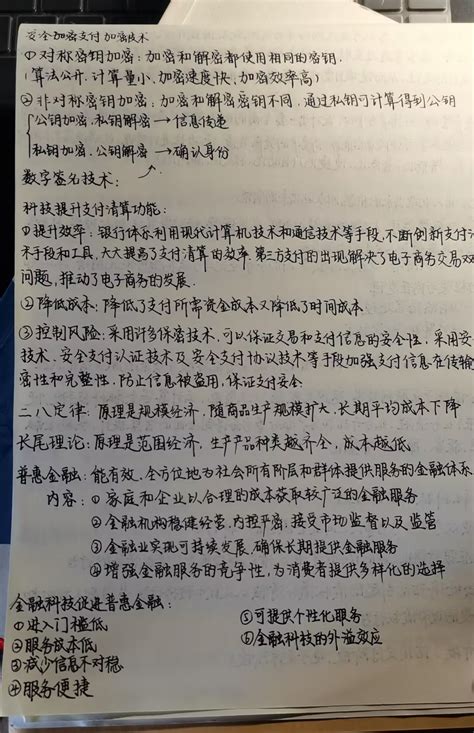 安全加密支付加密技术
①对称密钥加密：加密和解密都使用相同的密钥.
(算法公开,计算量小,加密速度快,加密效率高)
②非对称密钥加密：加密和解密密钥不同,通过私钥可计算得到公钥
公钥加密.私钥解密→信息传递
私钥加密.公钥解密→确认身份
数字签名技术：
科技提升支付清算功能：
①提升效率：银行体系利用现代计算机技术和通信技术等手段,不断创新支付
术手段和工具,大大提高了支付清算的效率.第三方支付的出现解决了电子商务交易双
问题,推动了电子商务的发展.
②降低成本：降低了支付所需资金成本又降低了时间成本
③控制风险：采用许多保密技术,可以保证交易和支付信息的安全性,采用安
技术、安全支付认证技术及安全支付协议技术等手段加强支付信息在传输
密性和完整性,防止信息被盗用,保证支付安全
二八定律：原理是规模经济,随商品生产规模扩大,长期平均成本下降
长尾理论：原理是范围经济,生产产品种类越齐全,成本越低
普惠金融：能有效、全方位地为社会所有阶层和群体提供服务的金融体系
内容：①家庭和企业以合理的成本获取较广泛的金融服务
②金融机构稳健经营,内控严密,接受市场监督以及监管
③金融业实现可持续发展,确保长期提供金融服务
④增强金融服务的竞争性,为消费者提供多样化的选择
金融科技促进普惠金融：
①进入门槛低
②服务成本低
③减少信息不对称
④服务便捷
⑤可提供个性化服务
⑥金融科技的外溢效应